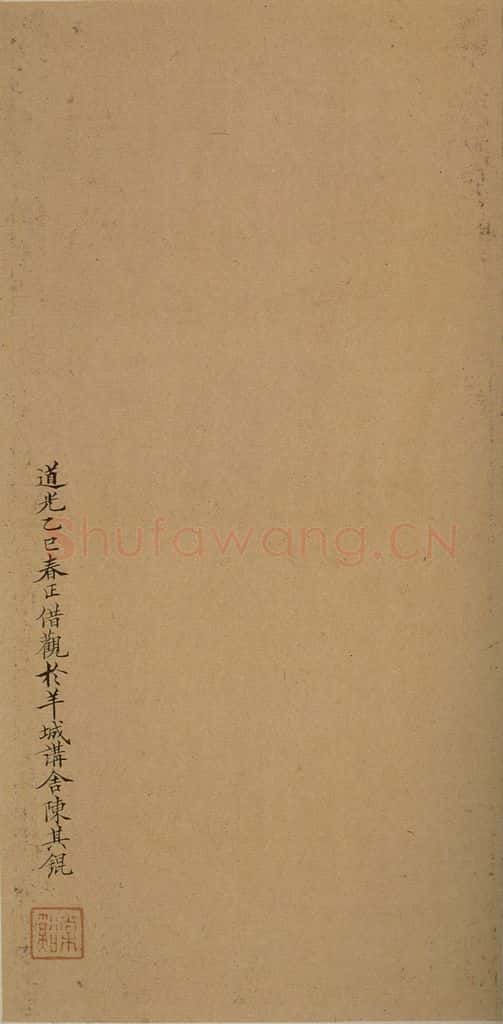 道光乙巳春正借觀於羊城講舍陳其錕
Shufawang.CN